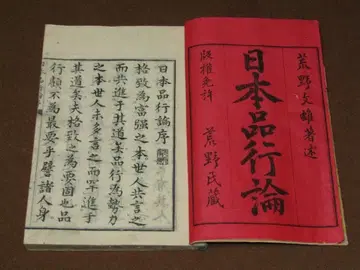 荒野文雄著述
日本品行論
版権免許 荒野氏蔵
日本品行論序
格致為富強之本世人共言之
而共進于其道矣品行為勢力
之本世人未多言之而罕進于
其道矣夫格致之為要固也品
行顧不為最要乎譬諸人身